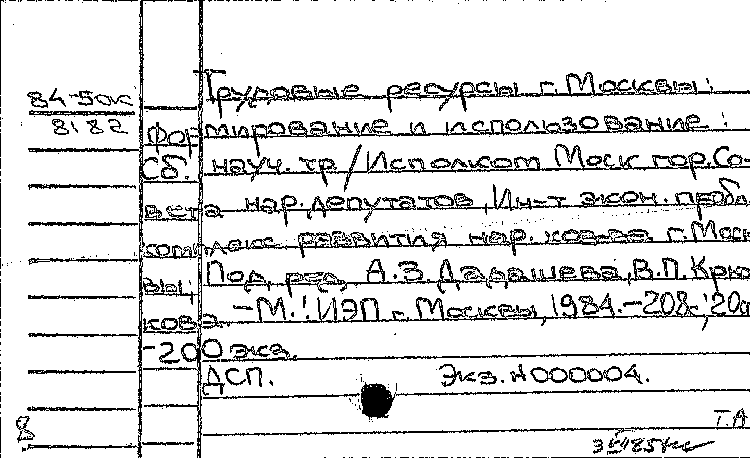 84-5дск
8182
Трудовые ресурсы г. Москвы:
формирование и использование:
Сб. науч. тр/Исполком Моск гор. Со-
вета нар. депутатов, Ин-т экон. пробл.
комплекс. развития нар. хоз-ва г. Моск
вы; Под. ред. А.З. Дадашева, В.П. Крю
кова. -М.: ИЭП г. Москвы, 1984.-208с.; 20
-200 экз.
ДСП. Экз. N000004.
8 Т.А